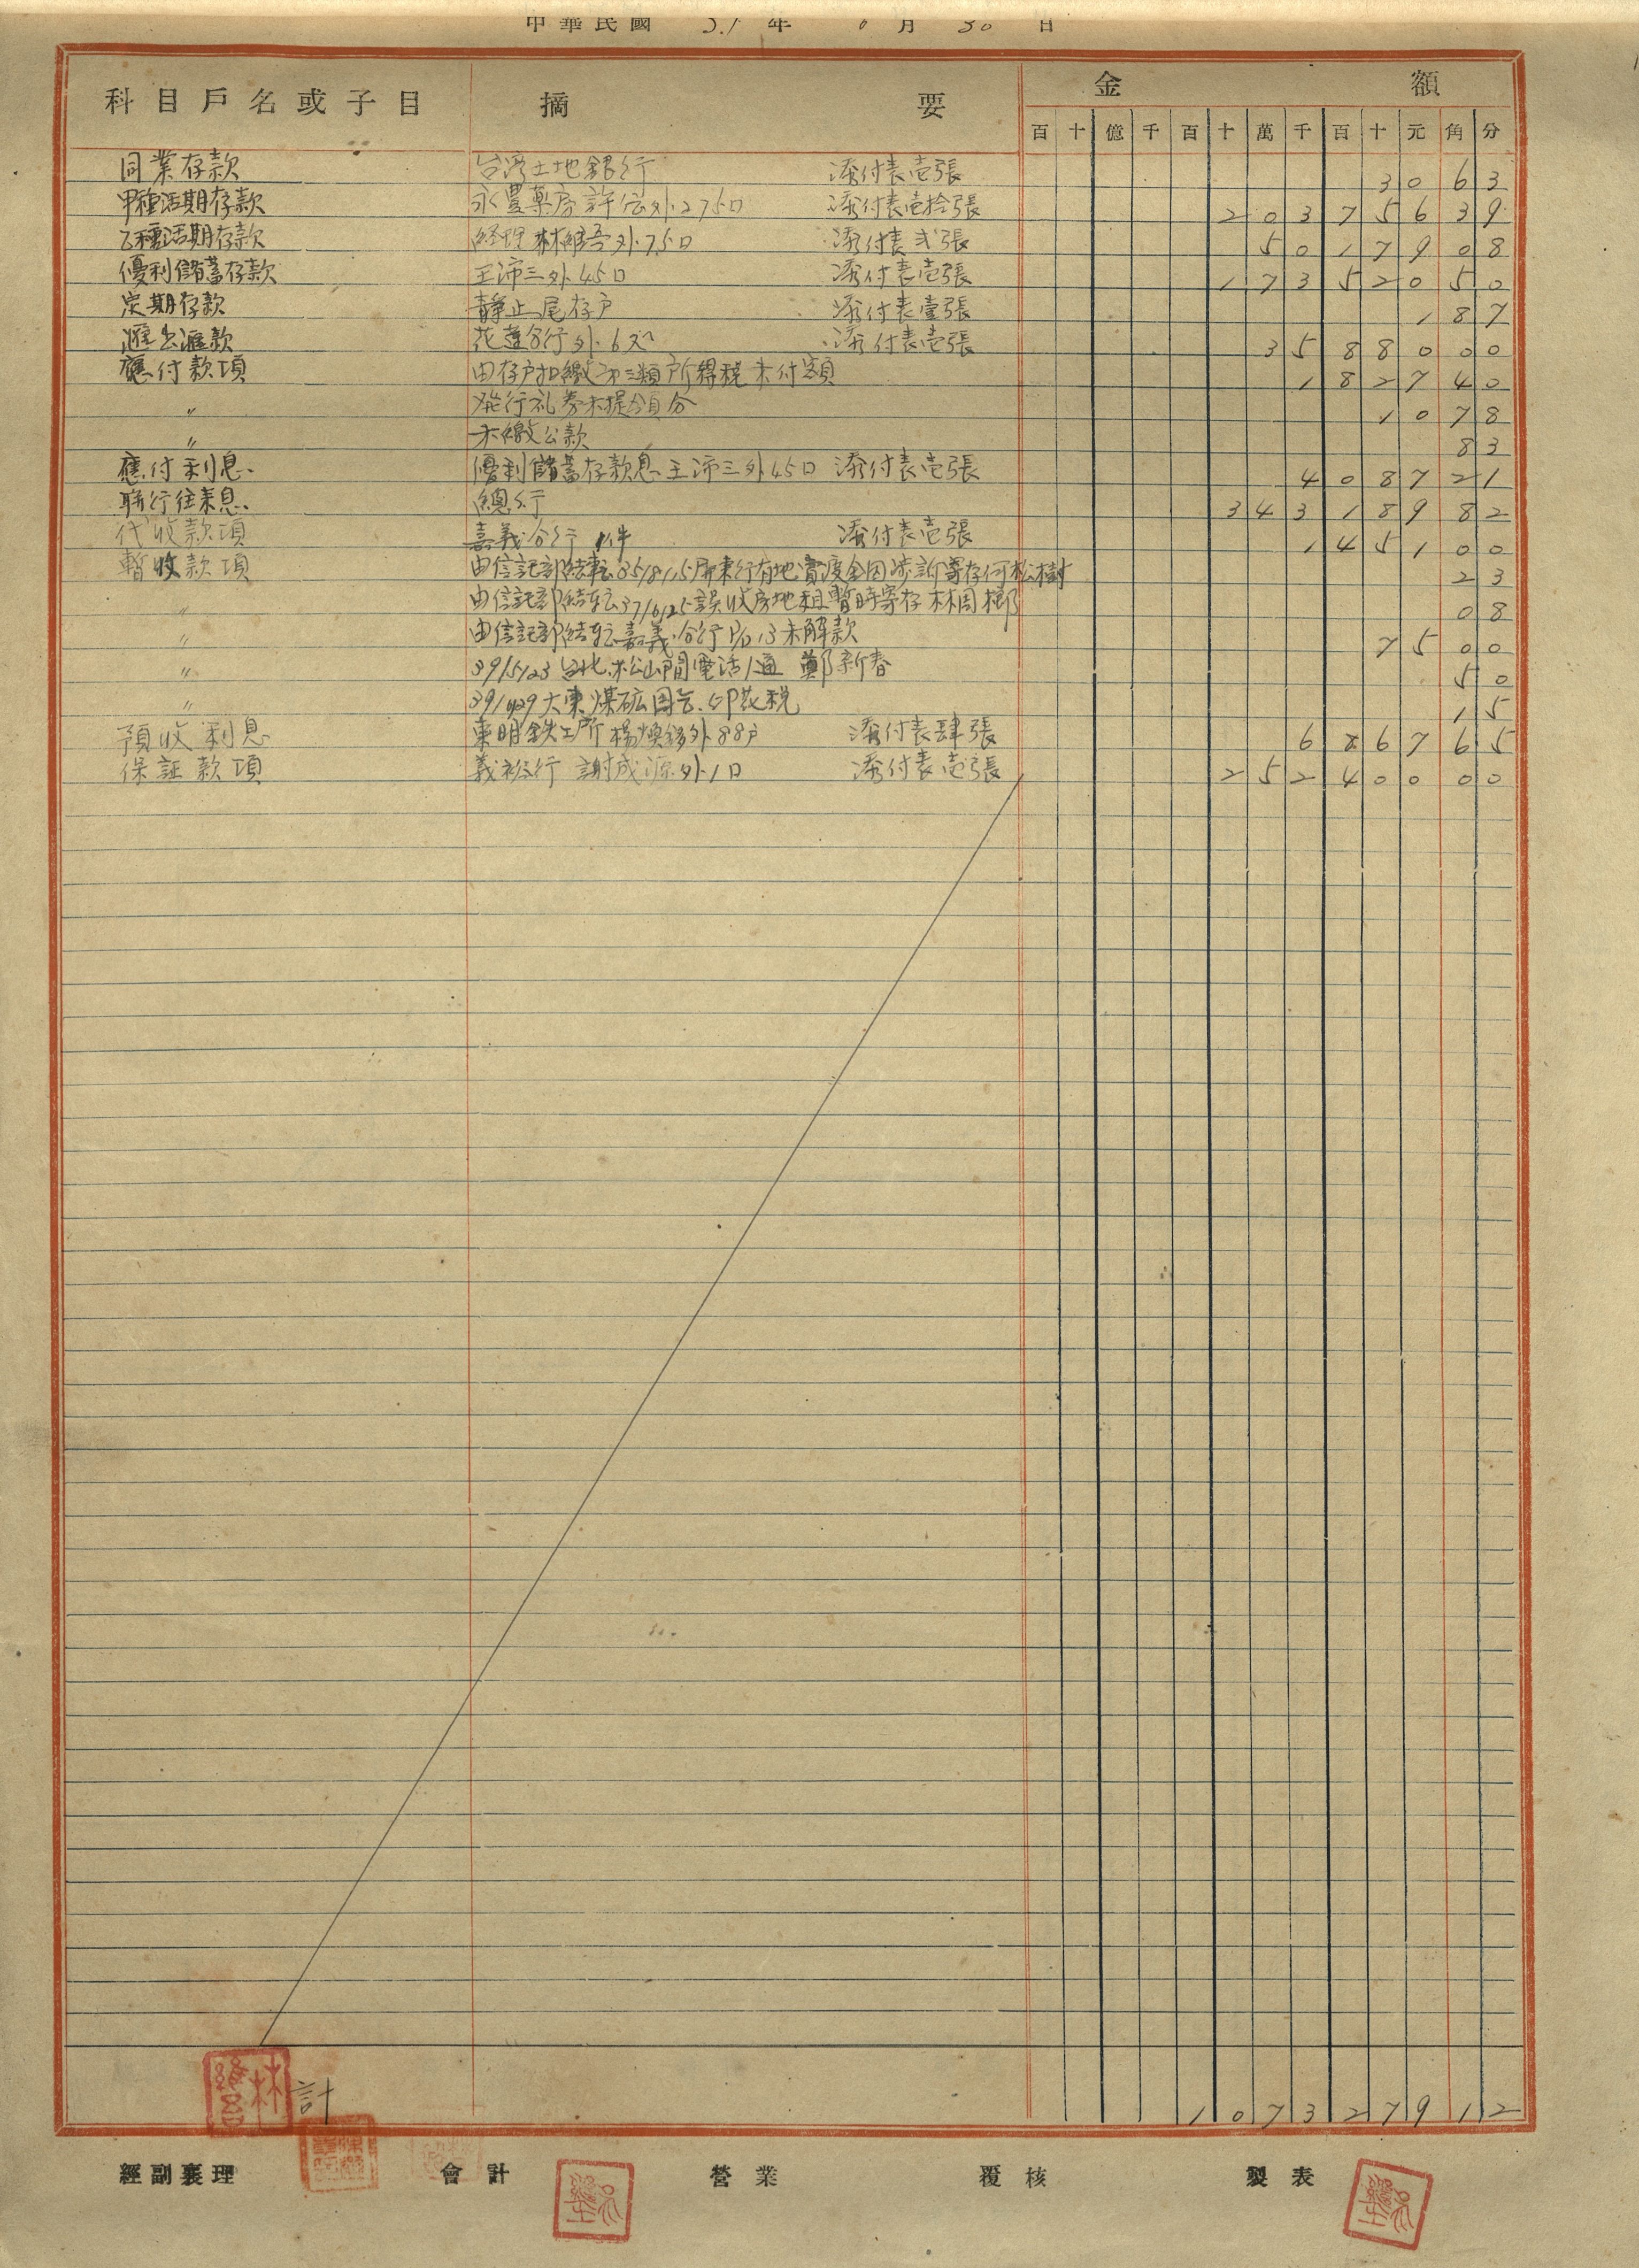 中華民國 39年 6月 30日
科目戶名或子目 摘要 金額
百 十 億 千 百 十 萬 千 百 十 元 角 分
同業存款 台湾土地銀行 添付表壱張 30 63
甲種活期存款 永豊薬房 許 外275口 添付表壱拾張 203756 39
乙種活期存款 経理 林維吾 外75口 添付表弍張 50179 08
優利儲蓄存款 王沛三外45口 添付表壱張 173520 50
定期存款 靜止尾存戶 添付表壹張 1 87
滙出滙款 花蓮分行 外6 添付表壱張 35880 00
應付款項 由存戶扣繳 三類所得税未付額 1827 40
〃 発行礼券未提領分 10 78
〃 未繳公款 83
應付利息 優利儲蓄存款息 王沛三外45口 添付表壱張 4087 21
聯行往来息 總行 343189 82
代收款項 嘉義分行 1件 添付表壱張 1451 00
暫收款項 由信託部結転35/8/15屏東行有地賣渡金因涉訴寄存何松樹 23
〃 由信託部結転37/6/25誤收房地租暫時寄存 林周 08
〃 由信託部結転嘉義分行 未解款 75 00
〃 39/5/23 台北松山間電話1通 鄭新春 50
〃 大東煤砿 印花税 15
預收利息 東明鉄工所 楊 外88戶 添付表肆張 6867 65
保証款項 義裕行 謝成源外1口 添付表壱張 252400 00
計 1073279 12
林維吾
經副襄理 會計 營業 覆核 製表